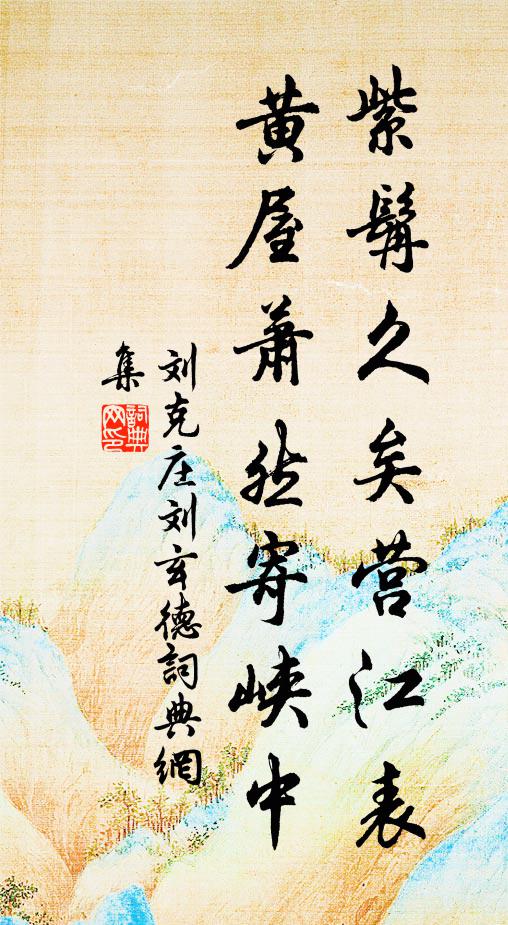 紫髯久矣营江表
黄屋萧然寄峡中
刘克庄刘玄德詞典網
集
詞典网印